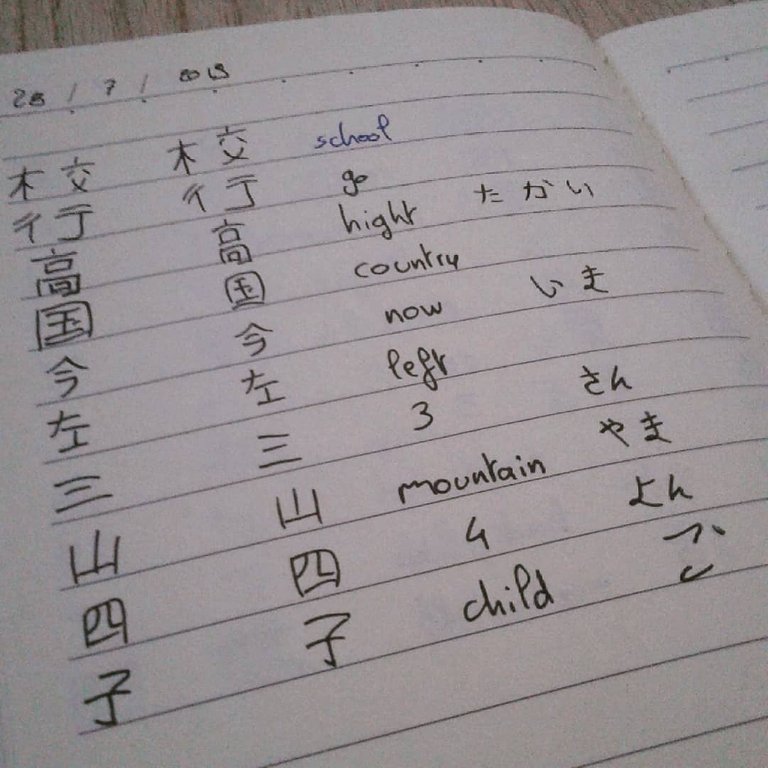 28 / 7 /
校 校 school
行 行 go
高 高 hight たかい
国 国 country
今 今 now いま
左 左 left
三 三 3 さん
山 山 mountain やま
四 四 4 よん
子 子 child こ